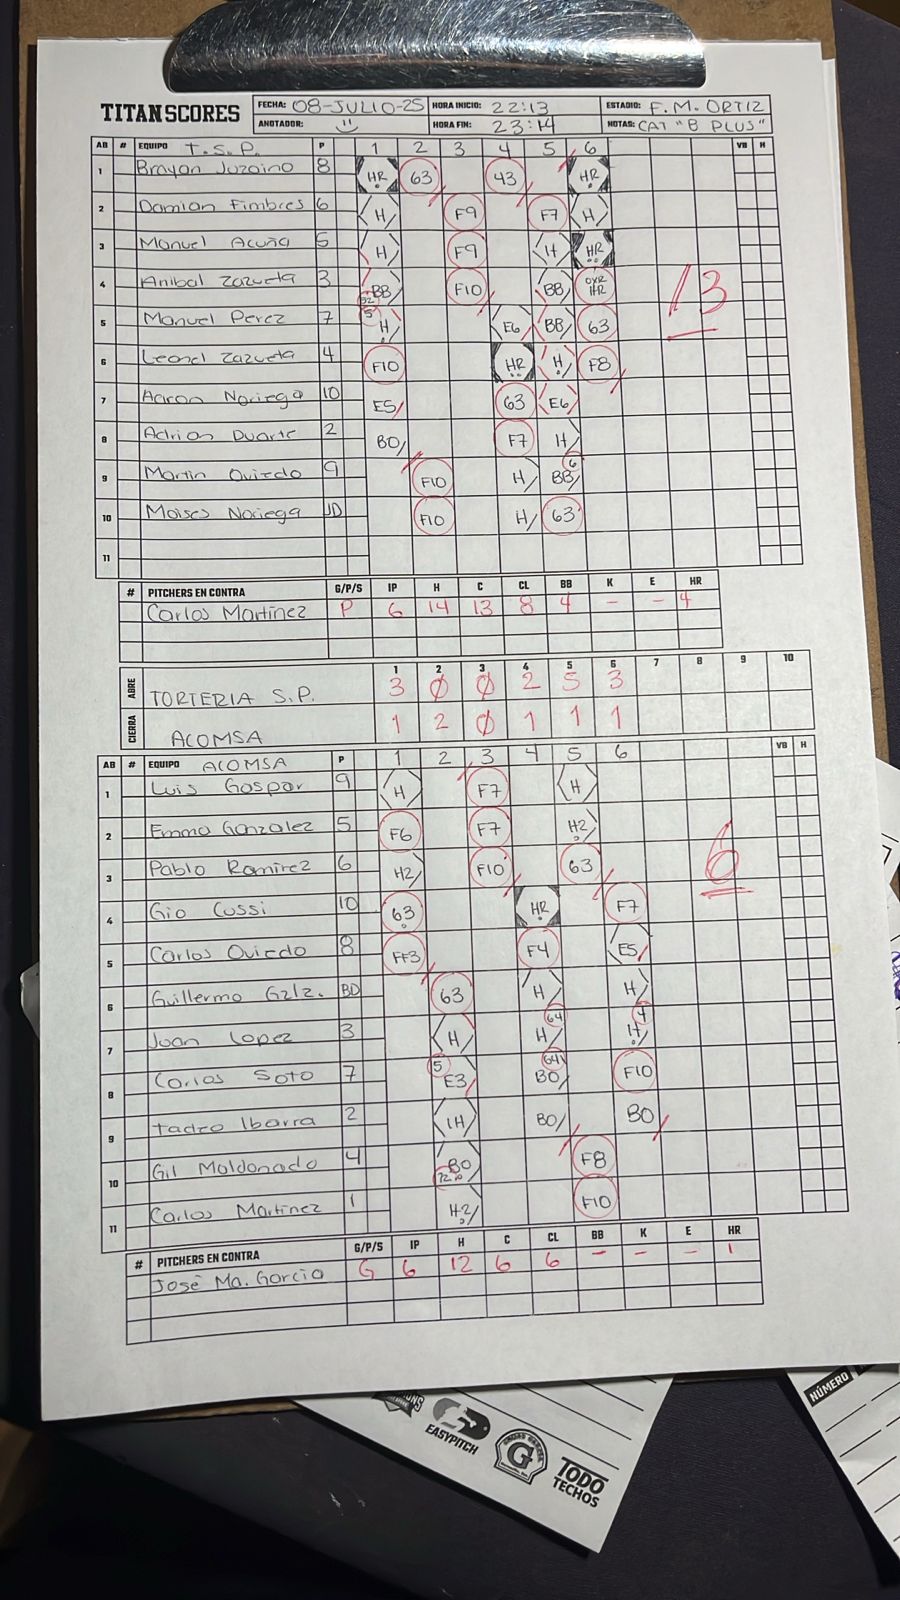 TITAN SCORES
FECHA: 08-JULIO-25 HORA INICIO: 22:13 ESTADIO: F.M. ORTIZ
ANOTADOR: HORA FIN: 23:14 NOTAS: CAT "B PLUS"
AB # EQUIPO T.S.P. P 1 2 3 4 5 6 VB H
1 Brayan Juzaino 8 HR 63 43 HR
2 Damian Fimbres 6 H F9 F7 H
3 Manuel Acuña 5 H F9 H HR
4 Anibal Zazueta 3 BB 52 F10 BB OXR HR
5 Manuel Perez 7 5 H E6 BB 63
6 Leonel Zazueta 4 F10 HR H F8
7 Aaron Noriega 10 E5 63 E6
8 Adrian Duarte 2 BO F7 H
9 Martin Oviedo 9 F10 H BB 6
10 Moises Noriega JD F10 H 63
11
13
# PITCHERS EN CONTRA G/P/S IP H C CL BB K E HR
Carlos Martinez P 6 14 13 8 4 - - 4
1 2 3 4 5 6 7 8 9 10
ABRE TORTERIA S.P. 3 Ø Ø 2 5 3
CIERRA ACOMSA 1 2 Ø 1 1 1
AB # EQUIPO ACOMSA P 1 2 3 4 5 6 VB H
1 Luis Gaspar 9 H F7 H
2 Emmo Gonzalez 5 F6 F7 H2
3 Pablo Ramirez 6 H2 F10 63
4 Gio Cussi 10 63 HR F7
5 Carlos Oviedo 8 FF3 F4 E5
6 Guillermo Gzlz. BD 63 H H
7 Juan Lopez 3 H H 64 H 4
8 Carlos Soto 7 5 E3 BO 64 F10
9 Tadeo Ibarra 2 IH BO BO
10 Gil Maldonado 4 BO F8
11 Carlos Martinez 1 H2 F10
6
# PITCHERS EN CONTRA G/P/S IP H C CL BB K E HR
José Ma. Garcia G 6 12 6 6 - - - 1
NÚMERO
EASYPITCH
G
TODO
TECHOS